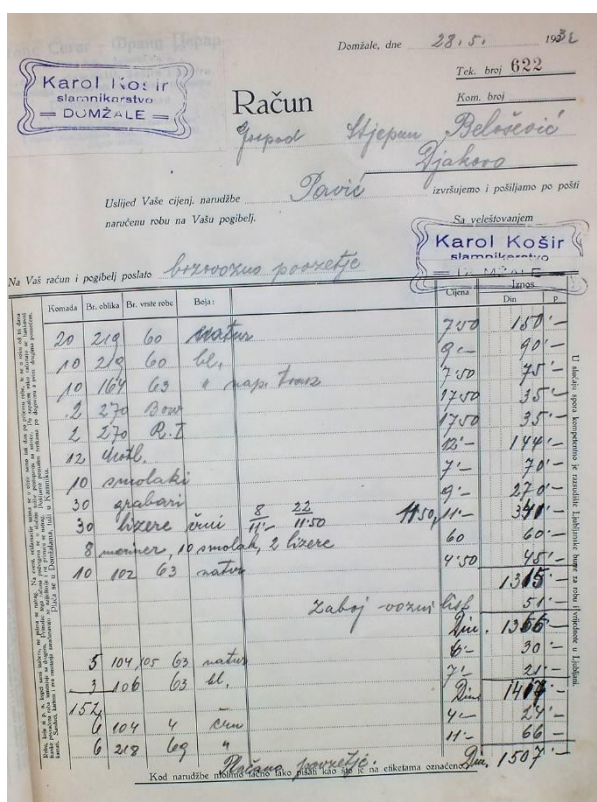 Domžale, dne 28. 5. 1932
Tek. broj 622
Kom. broj
Karol Košir
slamnikarstvo
DOMŽALE
Račun
Gospod Stjepan Belošević
Djakovo
Uslijed Vaše cijenj. narudžbe Pavić izvršujemo i pošiljamo po pošti
naručenu robu na Vašu pogibelj.
Sa veleštovanjem
Karol Košir
slamnikarstvo
DOMŽALE
Na Vaš račun i pogibelj poslato brzovozno povzetje
Komada Br. oblika Br. vrste robe Boja: Cijena Iznos
Din P
20 219 60 natur 7·50 150·—
10 219 60 bl. 9·— 90·—
10 164 63 " 7·50 75·—
2 270 17·50 35·—
2 270 R.I 17·50 35·—
12 12·— 144·—
10 smolaki 7·— 70·—
30 grabari 9·— 270·—
30 lizere črni 8/11·— 22/11·50 11·50, 11·— 341·—
8 mariner, 10 smolak, 2 lizere 60 60·—
10 102 63 natur 4·50 45·—
1315·—
Zaboj - vozni list 51·—
Din. 1366·—
5 104,105 63 natur 6·— 30·—
3 106 63 bl. 7·— 21·—
152 Din. 1417·—
6 104 4 črn 4·— 24·—
6 218 69 " 11·— 66·—
Plačano povzetje. Din. 1507·—
Kod narudžbe molimo tačno tako pisati kao što je na etiketama označeno.
U slučaju spora kompetentno je razsodište Ljubljanske burze za robu i vrijednote u Ljubljani.